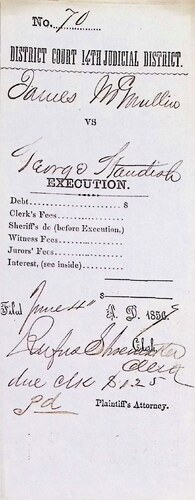 No. 70
DISTRICT COURT 14TH JUDICIAL DISTRICT.
James McMullin
VS
George Standish
EXECUTION.
Debt $
Clerk's Fees
Sheriff's do (before Execution.)
Witness Fees
Jurors' Fees
Interest, (see inside)
$
Filed June 4" A. D. 1856
Rufus Shoemaker Clerk
due clk $1.25
pd Plaintiff's Attorney.